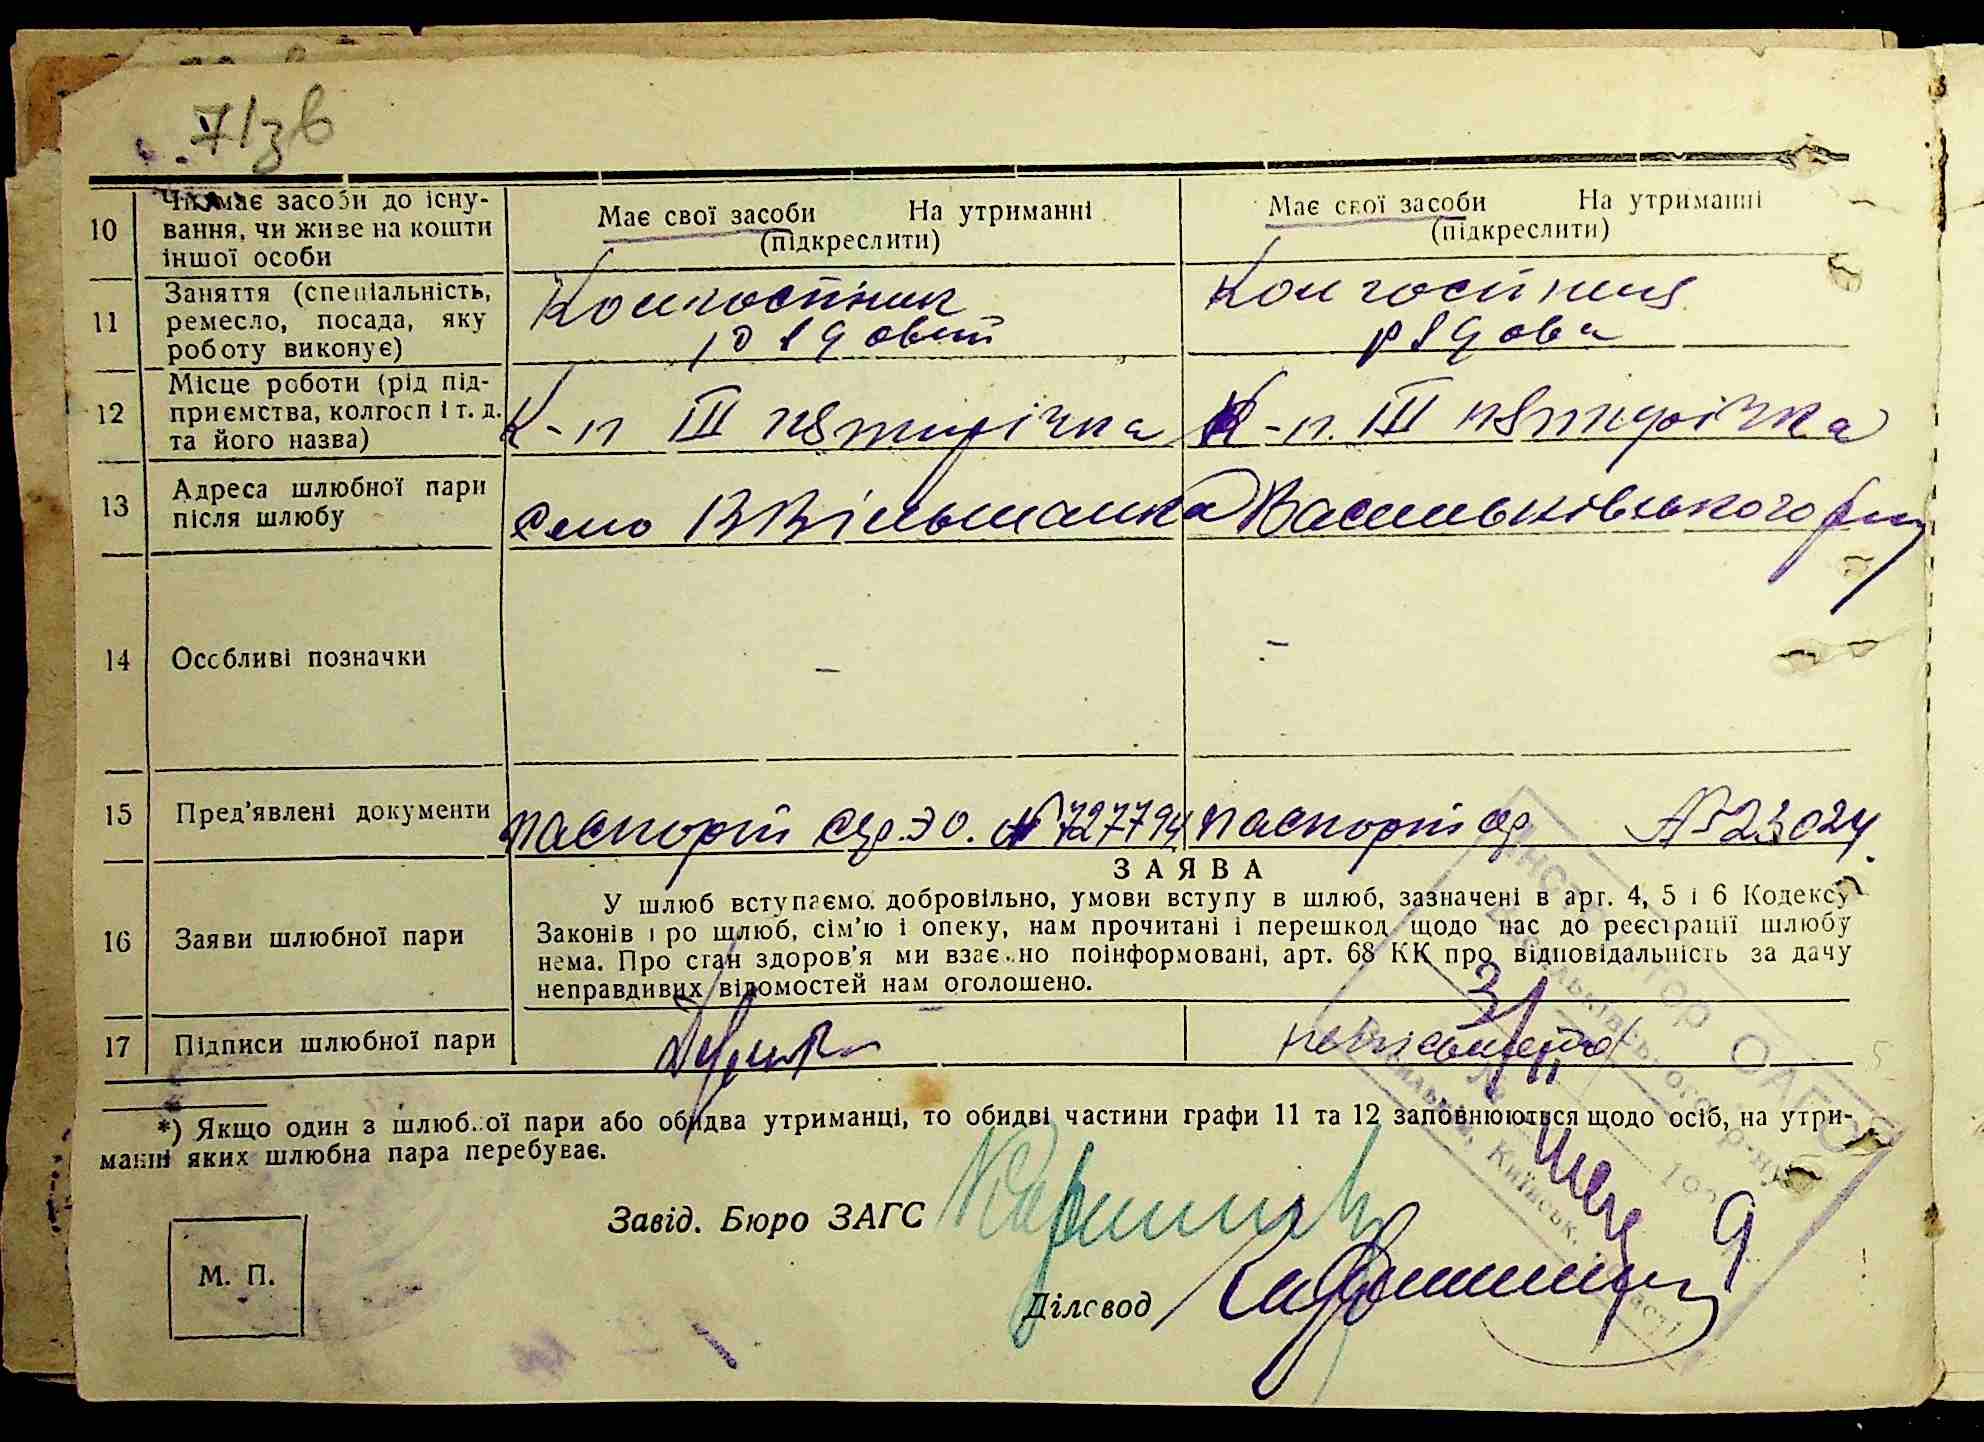 71зв
10 Чи має засоби до існу-
вання, чи живе на кошти
іншої особи
Має свої засоби На утриманні
(підкреслити)
Має свої засоби На утриманні
(підкреслити)
11 Заняття (спеціальність,
ремесло, посада, яку
роботу виконує)
Колгоспник
рядовий
Колгоспниця
рядова
12 Місце роботи (рід під-
приємства, колгосп і т. д.
та його назва)
К-п III пятирічка
К-п. III пятирічка
13 Адреса шлюбної пари
після шлюбу
Село ВВільшанка Васильківського р-ну
14 Особливі позначки
– –
15 Пред'явлені документи
паспорт сер. ЭО. № 727794
паспорт сер № 523024
ЗАЯВА
16 Заяви шлюбної пари
У шлюб вступаємо. добровільно, умови вступу в шлюб, зазначені в арт. 4, 5 і 6 Кодексу
Законів про шлюб, сім'ю і опеку, нам прочитані і перешкод щодо нас до реєстрації шлюбу
нема. Про стан здоров'я ми взаємно поінформовані, арт. 68 КК про відповідальність за дачу
неправдивих відомостей нам оголошено.
17 Підписи шлюбної пари
*) Якщо один з шлюбної пари або обидва утриманці, то обидві частини графи 11 та 12 заповнюються щодо осіб, на утри-
манні яких шлюбна пара перебуває.
Завід. Бюро ЗАГС
М. П.
Діловод